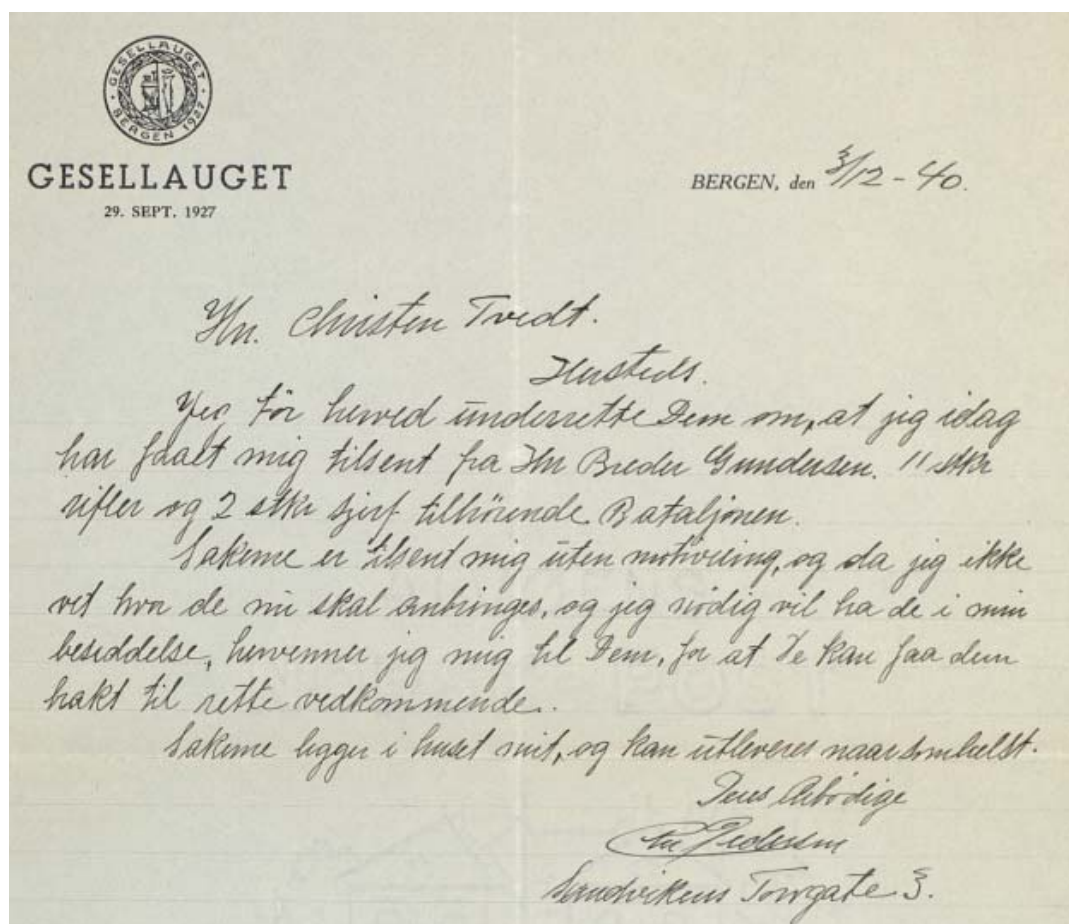 GESELLAUGET
BERGEN 1927
GESELLAUGET
29. SEPT. 1927
BERGEN, den 3/12 - 40.
Hn. Christen Tvedt.
Hersteds.
Jeg får herved underrette Dem om, at jeg idag
har faaet mig tilsent fra Hr Breder Gundersen. 11 stkr
rifler og 2 stkr sjerf tilhörende Bataljonen.
Sakerne er tilsent mig uten motivering, og da jeg ikke
vet hvor de nu skal anbringes, og jeg nödig vil ha de i min
besiddelse, henvenner jeg mig til Dem, for at De kan faa dem
bakt til rette vedkommende.
Sakerne ligger i huset mit, og kan utleveres naarsomhelst.
Deres Arbödige
Pedersen
Sandvikens Torvgate 3.